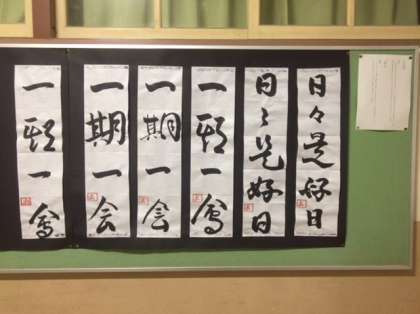 日々是好日
日〻是好日
一期一會
一期一会
一期一会
一期一會